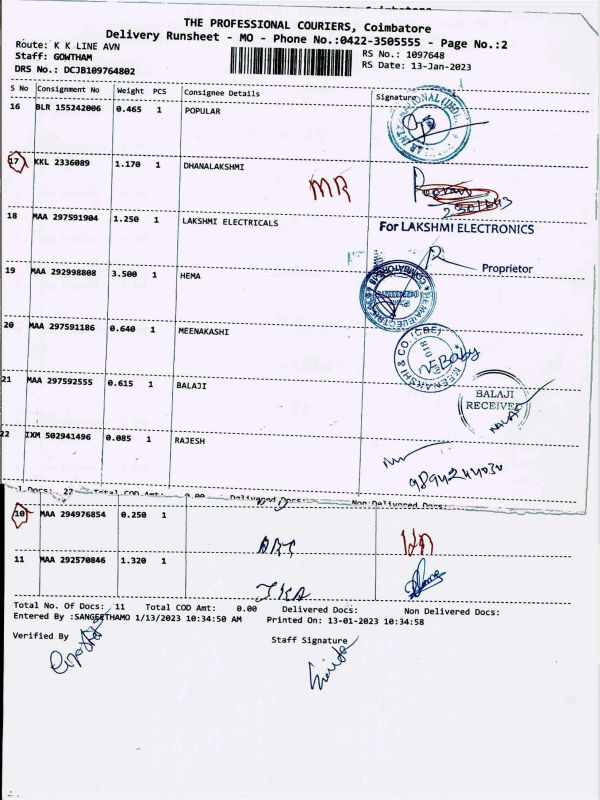 THE PROFESSIONAL COURIERS, Coimbatore
Delivery Runsheet - MO - Phone No.:0422-3505555 - Page No.:2
Route: K K LINE AVN
RS No.: 1097648
Staff: GOWTHAM
RS Date: 13-Jan-2023
DRS No.: DCJB109764802
S No Consignment No Weight PCS Consignee Details Signature
16 BLR 155242006 0.465 1 POPULAR
17 KKL 2336089 1.170 1 DHANALAKSHMI
MR
18 MAA 297591904 1.250 1 LAKSHMI ELECTRICALS
For LAKSHMI ELECTRONICS
Proprietor
19 MAA 292998808 3.500 1 HEMA
20 MAA 297591186 0.640 1 MEENAKASHI
MEENAKSHI & CO. (CBE)
641 018
21 MAA 297592555 0.615 1 BALAJI
BALAJI
RECEIVED
22 IXM 502941496 0.085 1 RAJESH
Docs: 22 Total COD Amt: 0.00 Delivered Docs: Non Delivered Docs:
10 MAA 294976854 0.250 1
11 MAA 292570846 1.320 1
Total No. Of Docs: 11 Total COD Amt: 0.00 Delivered Docs: Non Delivered Docs:
Entered By :SANGEETHAMO 1/13/2023 10:34:50 AM Printed On: 13-01-2023 10:34:58
Verified By Staff Signature